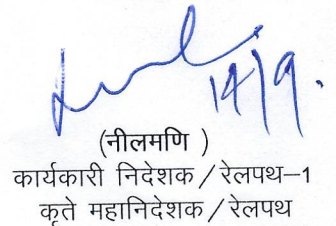 14/9.
(नीलमणि )
कार्यकारी निदेशक/रेलपथ-1
कृते महानिदेशक/रेलपथ